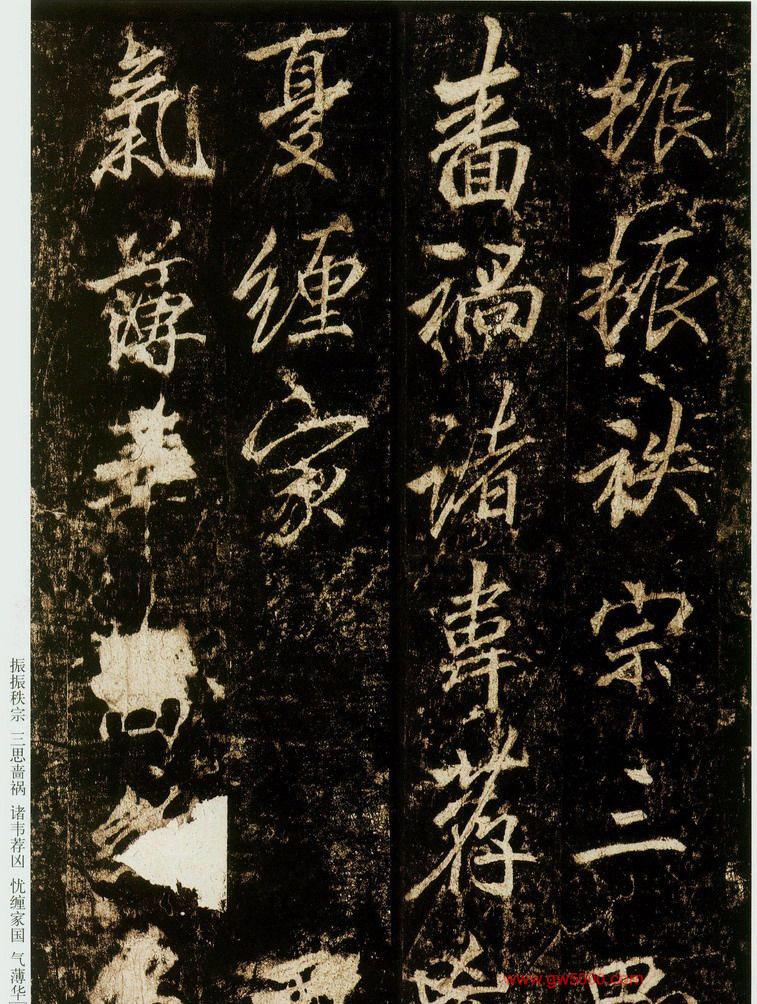 振振秩宗三
啬禍诸韋荐
夏缠家
氣薄華
振振秩宗 三思啬祸 诸韦荐凶 忧缠家国 气薄华
www.gw5000.com